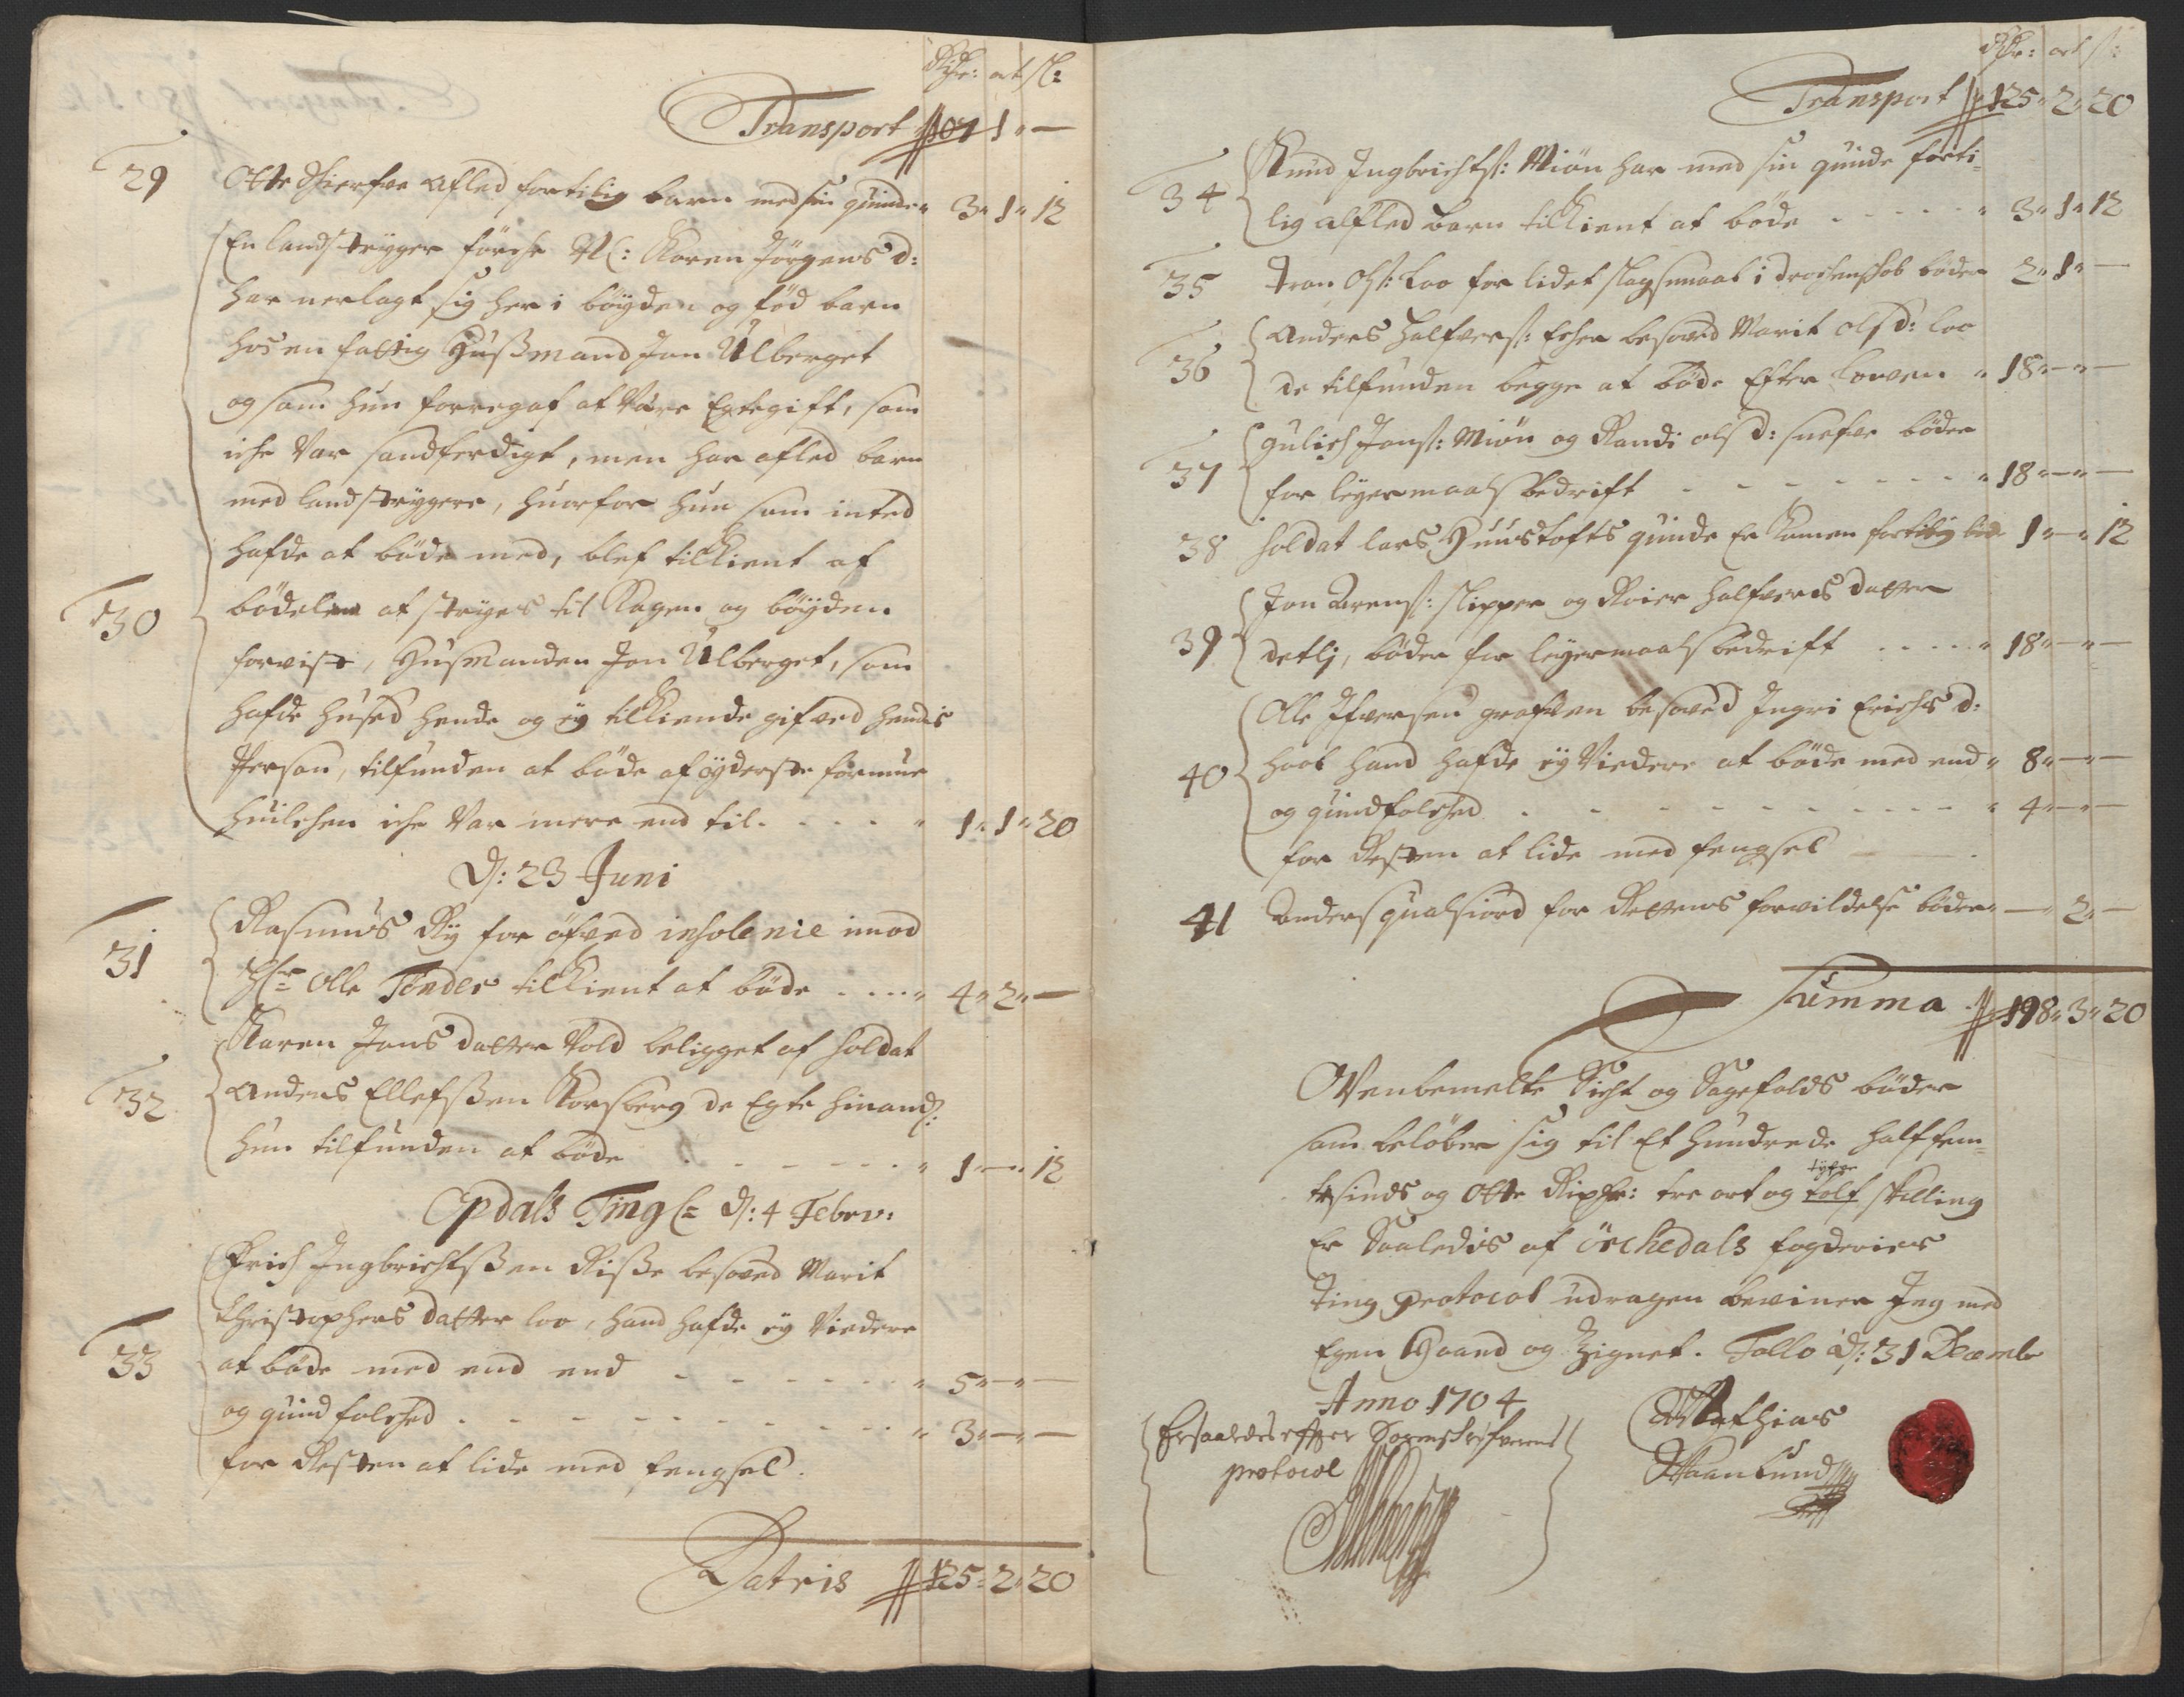 Rdr: ort sl:
Transport 107 1 " —
29 Otte Skierfve afled fortilig barn med sin quinde " 3 " 1 " 12
En landstryger förche N: Karen Jörgensd:
har nerlagt sig her i böyden og föd barn
hos en fattig Huszmand Jon Ulberget
og som hun forregaf at Være Egtegift, som
iche Var sandferdigt, men har afled barn
med landstrygere, huorfor hun som inted
hafde at böde med, blef tilkient af
30 bödelen at stryges til Kagen og böyden
forvist, Husmanden Jon Ulberget, som
hafde hused hende og ey tilkiende gifved hendis
Person, tilfunden at böde af yderste formue
huilchen iche Var mere end til . . . . " 1 " 1 " 20
D: 23 Juni
31 Rasmus Ry for öfved insolenie imod
Hr Olle Tönder tilkient at böde . . . . " 4 " 2 " —
Karen Jons datter Vold beligget af soldat
32 Anders Ellefszen Korsberg de Egte hinand:
hun tilfunden at böde . . . . . . " 1 " — " 12
Opdals Ting D: 4 Febrv:
Erich Ingbrichtszen Risze besoved Marit
Christophers datter loo, hand hafde ey Viedere
33 at böde med end end . . . . . . " 5 " — " —
og quindfolched . . . . . . . . " 3 " — " —
for Resten at lide med fengsel.
Latris 125 " 2 " 20
Rdr: ort s:
Transport 125 " 2 " 20
34 Knud Ingbrichts: Miön har med sin quinde forti-
lig afled barn tilkient at böde . . . . . " 3 " 1 " 12
35 Tron Ols: Loo for lidet slagsmaal i drochenschab böder 2 " 1 " —
36 Anders Halfvers: Esher besoved Marit olsd: loo
de tilfunden begge at böde Efter Lowen " 18 " — " —
37 Gulich Jons: Miön og Randi olsd: snefve böder
for leyermaals Bedrift . . . . . . . " 18 " — " —
38 Soldat lars Huustofts quinde Er kommen fortilig böd 1 " — " 12
39 Jon Arens: slipper og Roier halfvers datter
detlj, böder for leyermaals bedrift . . . . . " 18 " — " —
Olle Ifversen graften besoved Ingri Erichsd:
40 hoel hand hafde ey Viedere at böde med end " 8 " — " —
og quindfolched . . . . . . . . . " 4 " — " —
for Resten at lide med fengsel
41 Anders qualsiord for Rettens forvildelse böder " — " 2 " —
Summa 198 " 3 " 20
Ovenbemelte Sicht og Sagefalds böder
som belöber sig til Et hundrede halffem-
tesinds og Otte Rixdr: tre ort og tolf tyfve skilling
Er Saaledis af örchedals fogderies
Ting Protocol udragen beviner Jeg med
Egen Haand og Zignet. Follo D: 31 Decemb
Anno 1704
Er saaledes effter Sorenskrifverens
protocol
Mathias
Maanlund